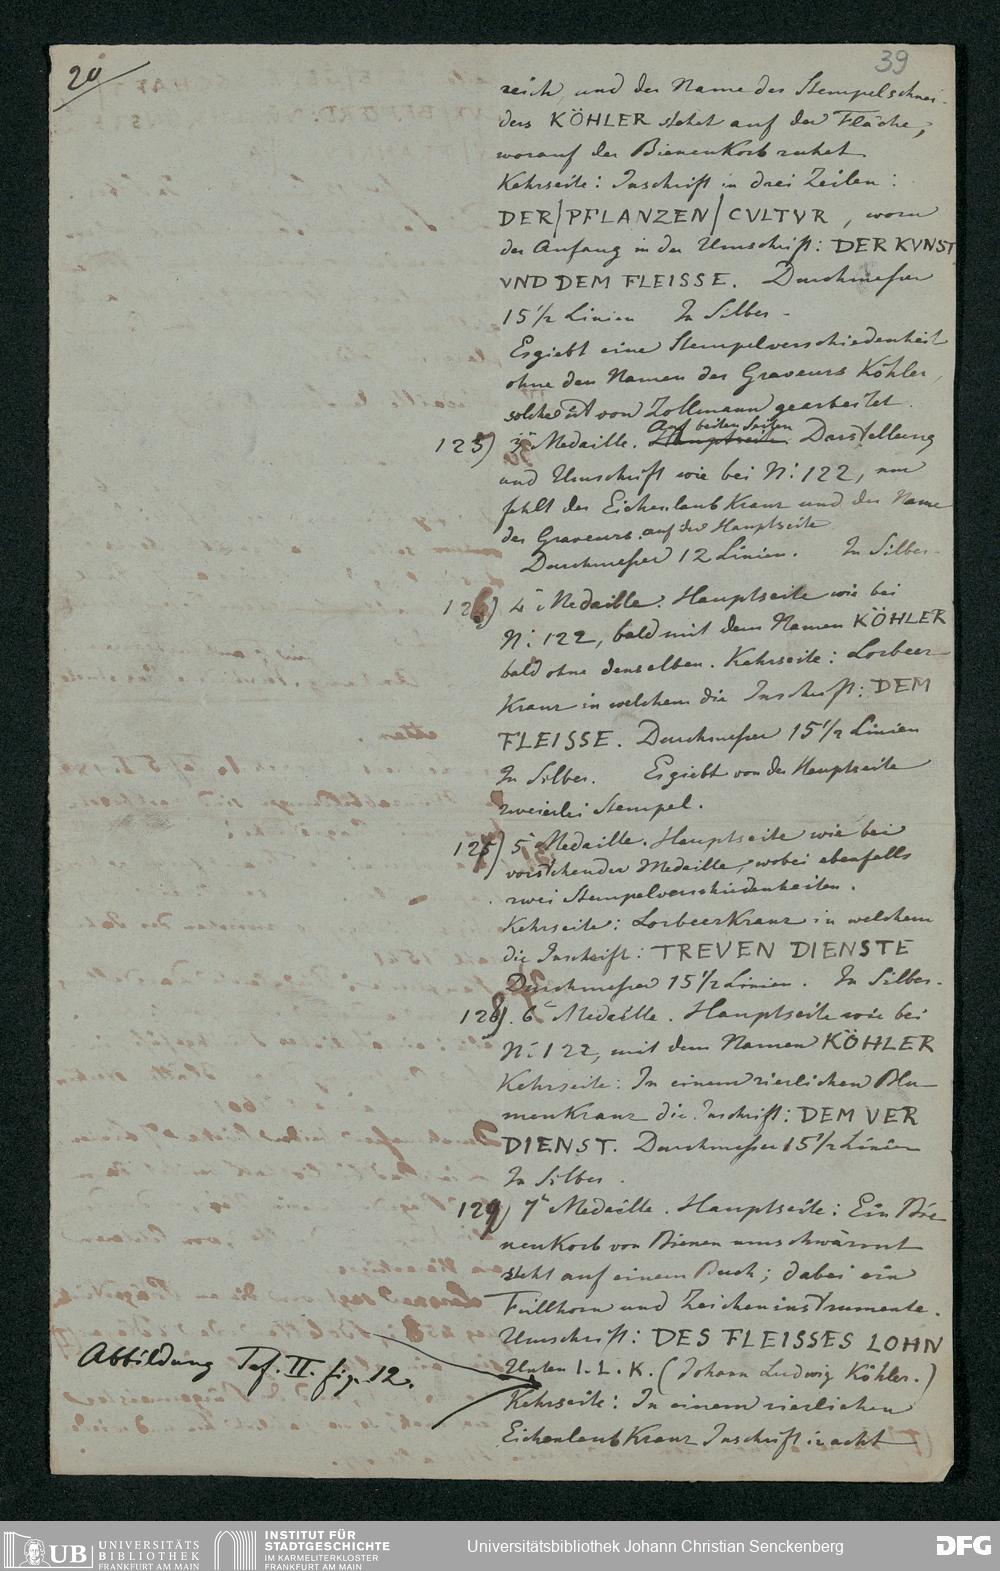 20
39
reich, und der Name des Stempelschnei-
ders KÖHLER stehet auf der Fläche,
worauf der Bienenkorb ruhet.
Kehrseite: Inschrift in drei Zeilen:
DER/PFLANZEN/CVLTVR, wozu
der Anfang in der Umschrift: DER KVNST
VND DEM FLEISSE. Durchmesser
15 1/2 Linien In Silber.
Es giebt eine Stempelverschiedenheit
ohne den Namen des Graveurs Köhler,
solche ist von Zollmann gearbeitet.
125) 3e Medaille. Hauptseite. Auf beiden Seiten Darstellung
und Umschrift wie bei N: 122, nur
fehlt der Eichenlaub Kranz und der Name
des Graveurs auf der Hauptseite
Durchmesser 12 Linien. In Silber.
126) 4e Medaille. Hauptseite wie bei
N: 122, bald mit dem Namen KÖHLER
bald ohne denselben. Kehrseite: Lorbeer-
Kranz in welchem die Inschrift: DEM
FLEISSE. Durchmesser 15 1/2 Linien
In Silber. Es giebt von der Hauptseite
zweierlei Stempel.
127) 5e Medaille. Hauptseite wie bei
vorstehender Medaille, wobei ebenfalls
zwei Stempelverschiedenheiten.
Kehrseite: Lorbeerkranz in welchem
die Inschrift: TREVEN DIENSTE
Durchmesser 15 1/2 Linien. In Silber.
128). 6e Medaille. Hauptseite wie bei
N: 122, mit dem Namen KÖHLER
Kehrseite: In einem zierlichen Blu-
menkranz die Inschrift: DEM VER
DIENST. Durchmesser 15 1/2 Linien
In Silber.
129) 7e Medaille. Hauptseite: Ein Bie-
nenkorb von Bienen umschwärmt
steht auf einem Buch; dabei ein
Füllhorn und Zeicheninstrumente.
Umschrift: DES FLEISSES LOHN
Abbildung Taf. II. fig. 12.
Unten I. L. K. (Johann Ludwig Köhler.)
Kehrseite: In einem zierlichen
Eichenlaub Kranz Inschrift in acht
UB UNIVERSITÄTS
BIBLIOTHEK
FRANKFURT AM MAIN
INSTITUT FÜR
STADTGESCHICHTE
IM KARMELITERKLOSTER
FRANKFURT AM MAIN
Universitätsbibliothek Johann Christian Senckenberg
DFG